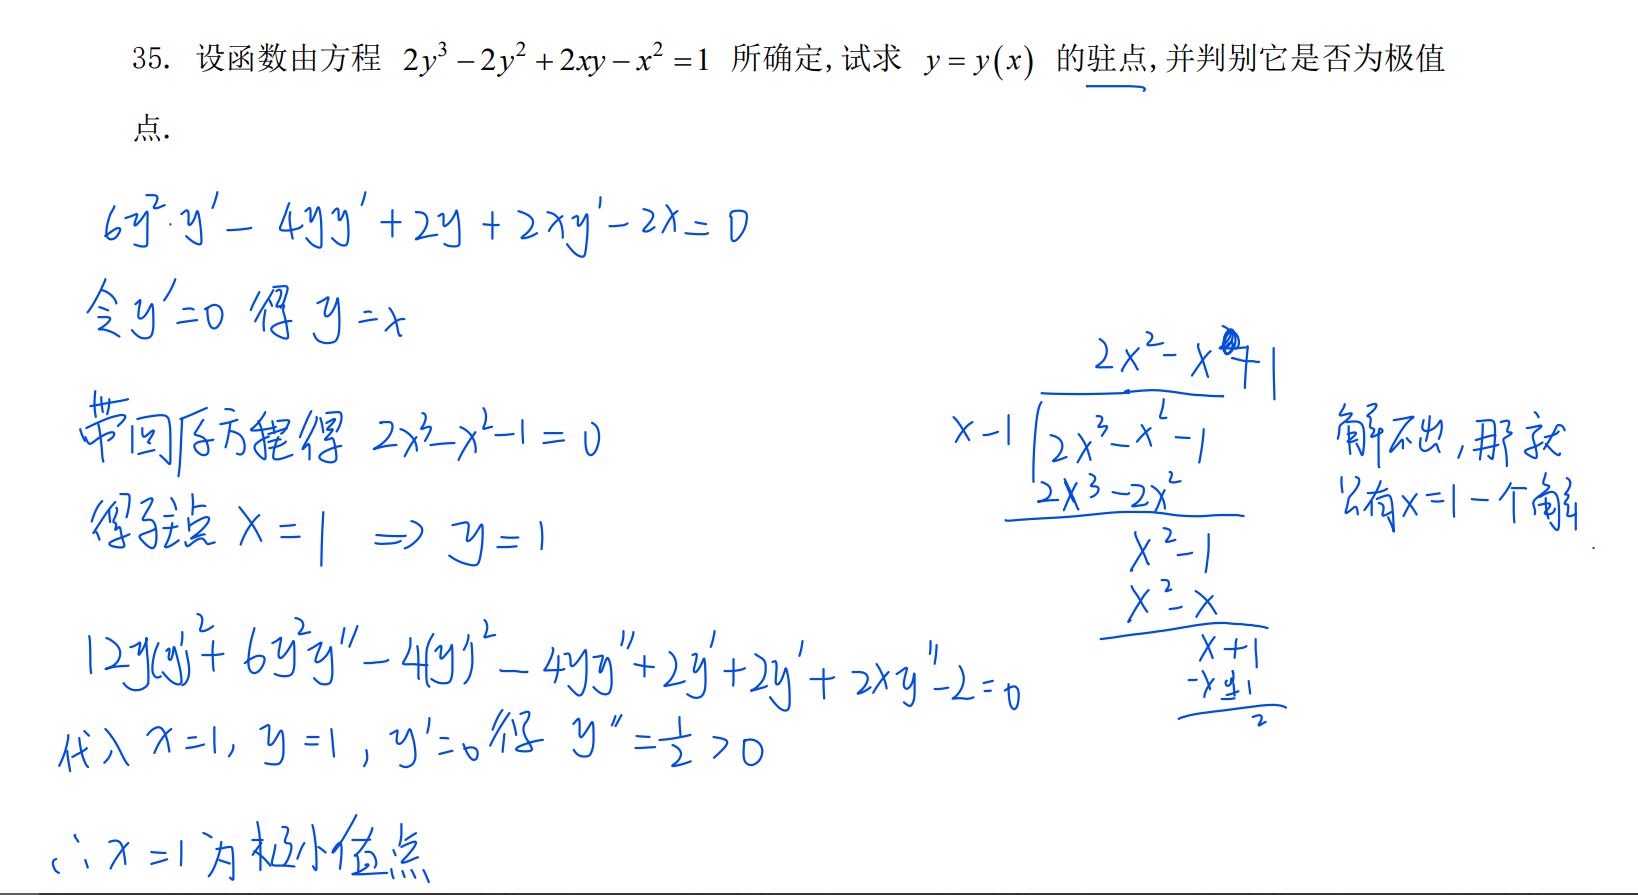 35. 设函数由方程 2y³ − 2y² + 2xy − x² = 1 所确定,试求 y = y(x) 的驻点,并判别它是否为极值
点.
6y²·y′ − 4yy′ + 2y + 2xy′ − 2x = 0
令y′=0 得 y=x
带回原方程得 2x³−x²−1=0
得驻点 x=1 ⇒ y=1
12y(y′)² + 6y²y″ − 4(y′)² − 4yy″ + 2y′ + 2y′ + 2xy″ − 2 = 0
代入 x=1, y=1, y′=0 得 y″=1/2>0
∴ x=1为极小值点
2x²−x+1
x−1 2x³−x²−1
2x³−2x²
x²−1
x²−x
x+1
−x+1
2
解不出,那就
只有x=1一个解.